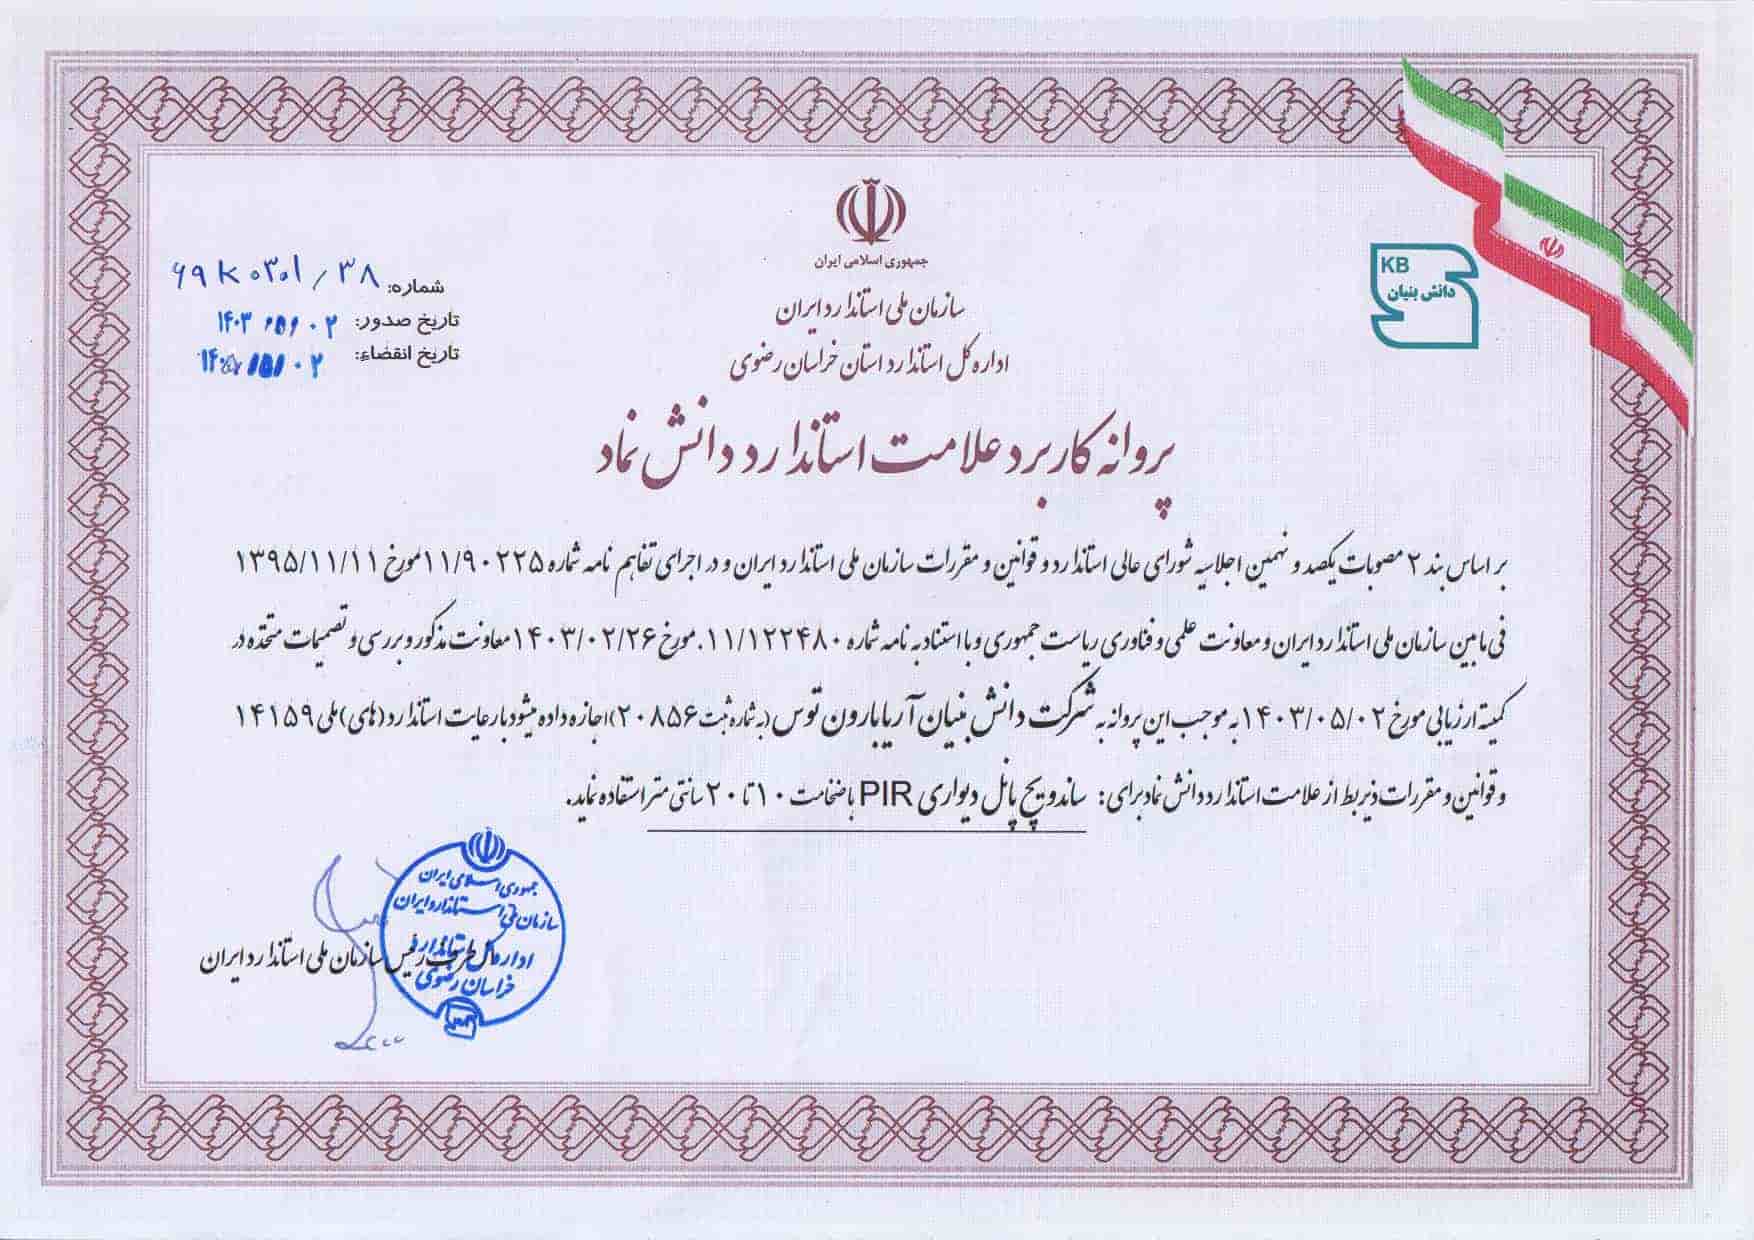 جمهوری اسلامی ایران
سازمان ملی استاندارد ایران
اداره کل استاندارد استان خراسان رضوی
KB
دانش بنیان
شماره: ۶۹K۰۳۰۱/۳۸
تاریخ صدور: ۱۴۰۳/۰۵/۰۲
تاریخ انقضاء:
پروانه کاربرد علامت استاندارد دانش نماد
بر اساس بند ۲ مصوبات یکصد و نهمین اجلاسیه شورای عالی استاندارد و قوانین و مقررات سازمان ملی استاندارد ایران و در اجرای تفاهم نامه شماره ۱۱/۹۰۲۲۵ مورخ ۱۳۹۵/۱۱/۱۱
فی مابین سازمان ملی استاندارد ایران و معاونت علمی و فناوری ریاست جمهوری و با استناد به نامه شماره ۱۱/۱۲۲۴۸۰. مورخ ۱۴۰۳/۰۲/۲۶ معاونت مذکور و بررسی و تصمیمات متخذه در
کمیته ارزیابی مورخ ۱۴۰۳/۰۵/۰۲ به موجب این پروانه به شرکت دانش بنیان آریا بارون توس (به شماره ثبت ۲۰۸۵۶) اجازه داده میشود با رعایت استاندارد (های) ملی ۱۴۱۵۹
و قوانین و مقررات ذیربط از علامت استاندارد دانش نماد برای: ساندویچ پانل دیواری PIR با ضخامت ۱۰ تا ۲۰ سانتی متر استفاده نماید.
جمهوری اسلامی ایران
سازمان ملی استاندارد ایران
اداره کل استاندارد
خراسان رضوی
از طرف رئیس سازمان ملی استاندارد ایران